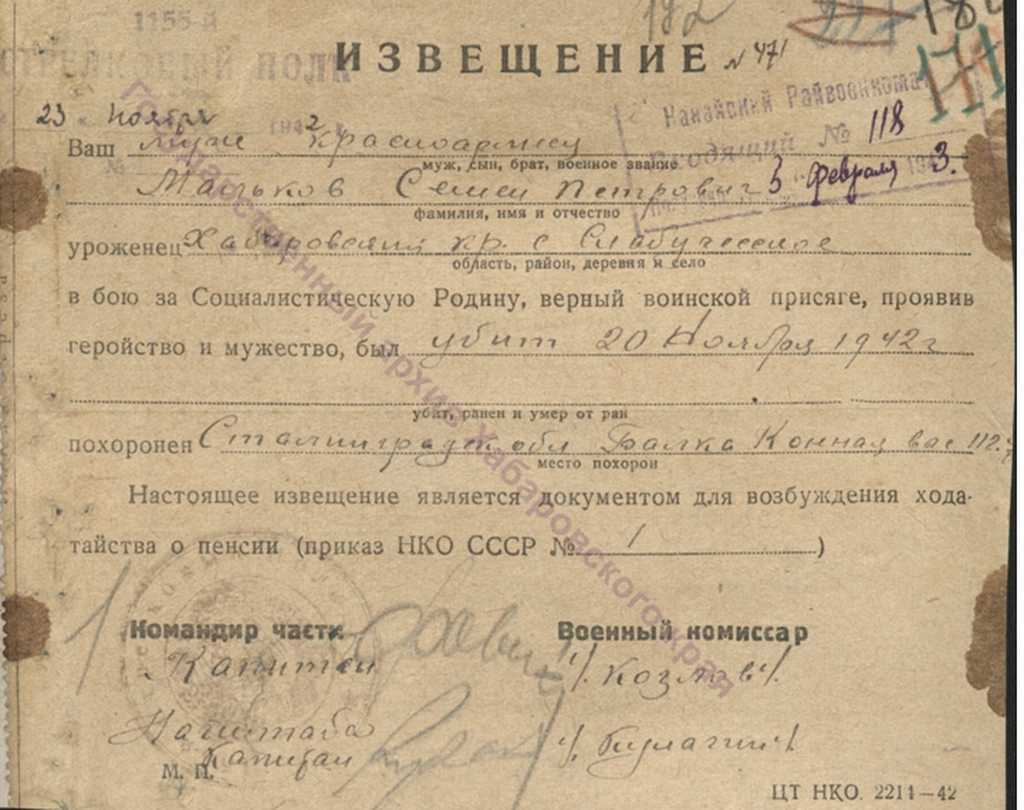 1155-й
СТРЕЛКОВЫЙ ПОЛК
182
ИЗВЕЩЕНИЕ № 471
23 ноября 1942
Нанайский Райвоенкомат
Входящий № 118
3 февраля 1943.
Ваш муж красноармеец
муж, сын, брат, военное звание
Мальков Семен Петрович
фамилия, имя и отчество
уроженец Хабаровский кр. с
область, район, деревня и село
в бою за Социалистическую Родину, верный воинской присяге, проявив
геройство и мужество, был убит 20 Ноября 1942г
убит, ранен и умер от ран
похоронен Сталинградск. обл Балка Конная выс 112.
место похорон
Настоящее извещение является документом для возбуждения хода-
тайства о пенсии (приказ НКО СССР № 1 )
Командир части Военный комиссар
Капитан /Козлов/.
Нач штаба
Капитан /Кулагин/
М. П.
ЦТ НКО. 2214—42
Государственный архив Хабаровского края